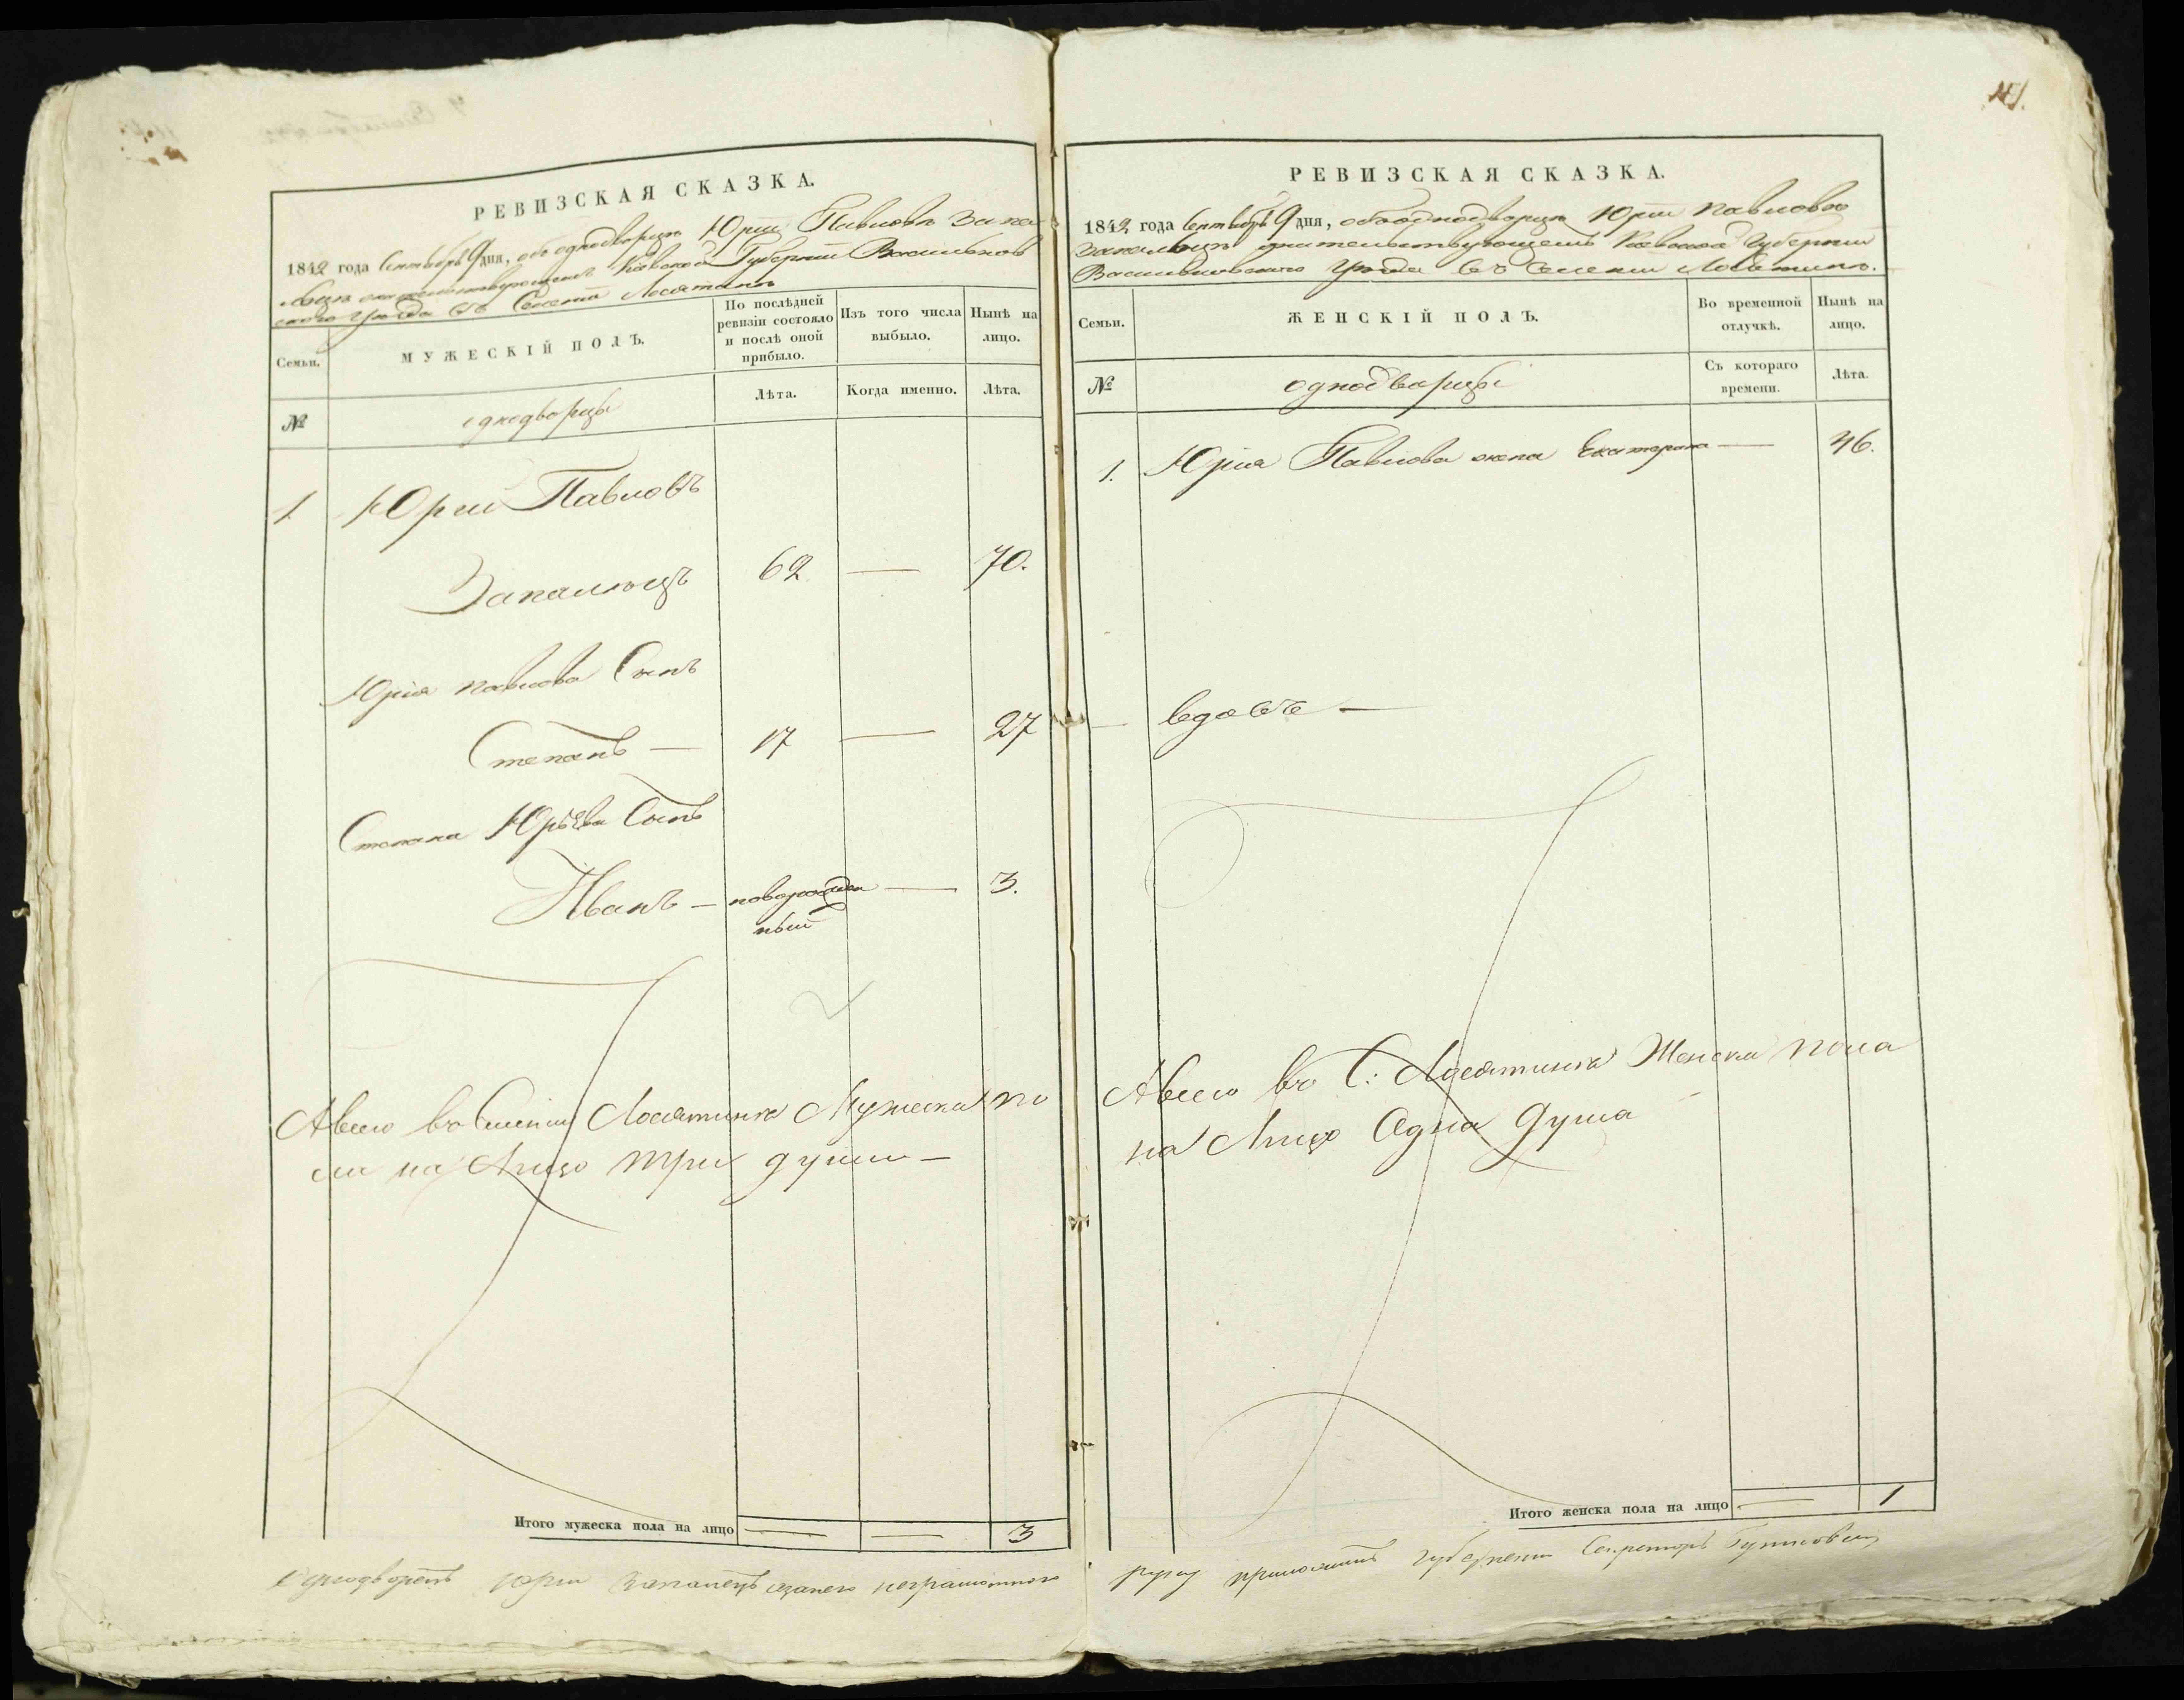 РЕВИЗСКАЯ СКАЗКА.
1842 года Сентября 9 дня, объ однодворцѣ Юріи Павловѣ Запа
льцѣ жительствующемъ Кіевской Губерніи Васильков
скаго Уѣзда въ Селеніи Лосятинѣ
Семьи.
МУЖЕСКІЙ ПОЛЪ.
По послѣдней
ревизіи состояло
и послѣ оной
прибыло.
Изъ того числа
выбыло.
Нынѣ на
лицо.
№
однодворцы
Лѣта.
Когда именно.
Лѣта.
1 Юрій Павловъ
62 — 70.
Юрія Павлова Сынъ
Степанъ — 17 — 27
Степана Юрьева Сынъ
Иванъ — новорожден — 3.
ный
Авсего въ Селеніи Лосятинкѣ Мужеска по
ла на Лицо три души —
Итого мужеска пола на лицо — — 3
Однодворецъ Юрій неграмотного
141.
РЕВИЗСКАЯ СКАЗКА.
1842 года Сентября 9 дня, объ однодворцѣ Юріи Павловѣ
жительствующемъ Кіевской Губерніи
Васильковскаго Уѣзда въ Селеніи Лосятинѣ.
Семьи.
ЖЕНСКІЙ ПОЛЪ.
Во временной
отлучкѣ.
Нынѣ на
лицо.
№
однодворцы
Съ котораго
времени.
Лѣта.
1. Юрія Павлова жена Екатерина — 46.
— вдовъ —
Авсего въ С: Лосятинкѣ Женска пола
на Лицо Одна душа
Итого женска пола на лицо — 1
руку приложилъ Губернскій Секретарь